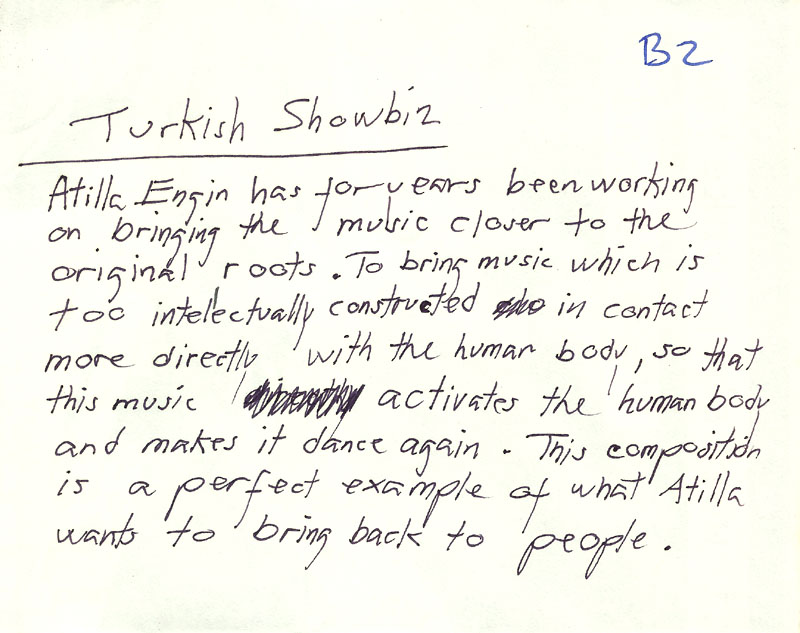 B2
Turkish Showbiz
Atilla Engin has for years been working
on bringing the music closer to the
original roots. To bring music which is
too intellectually constructed in contact
more directly with the human body, so that
this music activates the human body
and makes it dance again. This composition
is a perfect example of what Atilla
wants to bring back to people.